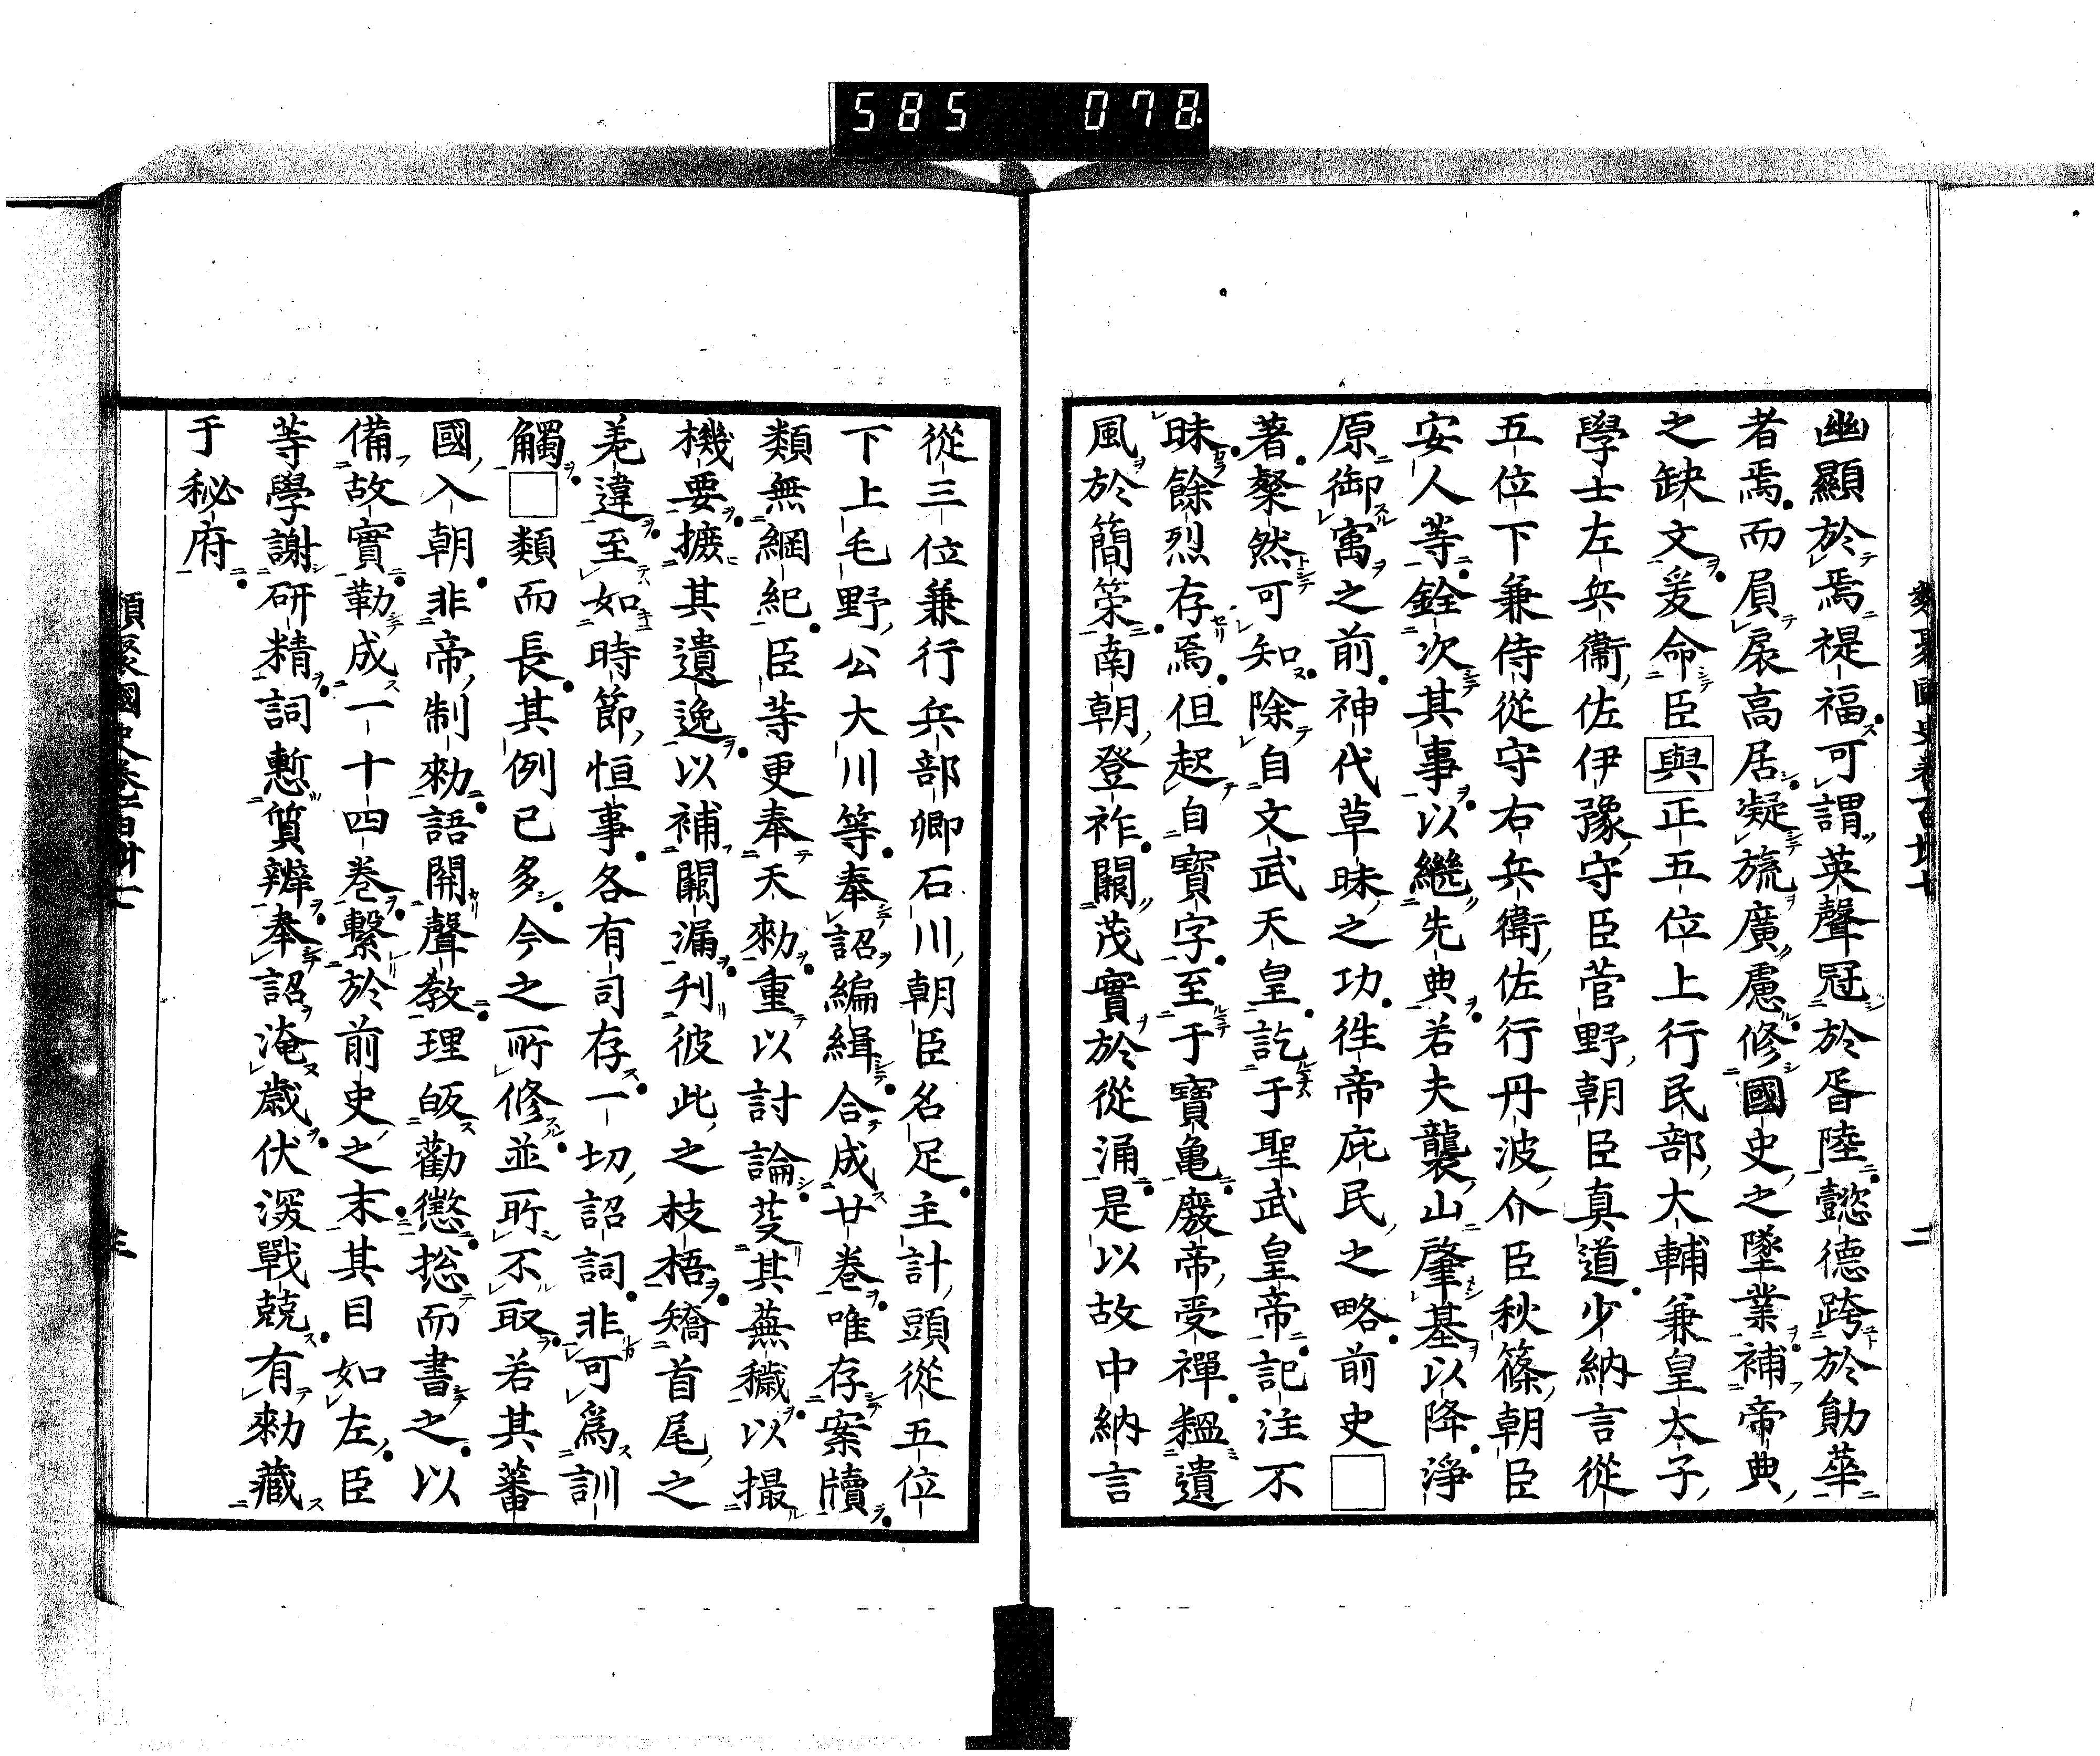 585 078
幽顯於焉禔福可謂英聲冠於胥陸懿德跨於勛華
者焉而屓扆高居凝旒廣慮修國史之墜業補帝典
之缺文爰命臣與正五位上行民部大輔兼皇太子
學士左兵衞佐伊豫守臣菅野朝臣真道少納言從
五位下兼侍從守右兵衛佐行丹波介臣秋篠朝臣
安人等銓次其事以繼先典若夫襲山肇基以降淨
原御㝢之前神代草昧之功徃帝庇民之略前史□
著粲然可知除自文武天皇訖于聖武皇帝記注不
昧餘烈存焉但起自寶字至于寶亀廢帝受禪韞遺
風於簡策南朝登祚闕茂實於從涌是以故中納言
從三位兼行兵部卿石川朝臣名足主計頭從五位
下上毛野公大川等奉詔編緝合成廿巻唯存案牘
類無綱紀臣等更奉天勅重以討論芟其蕪穢以撮
機要摭其遺逸以補闕漏刋彼此之枝梧矯首尾之
差違至如時節恒事各有司存一切詔詞非可爲訓
觸□類而長其例已多今之所修並所不取若其蕃
國入朝非帝制勅語開聲教理皈勸懲捴而書之以
備故實勒成一十四巻繫於前史之末其目如左臣
等學謝研精詞慙質辨奉詔淹歲伏深戰兢有勅藏
于秘府